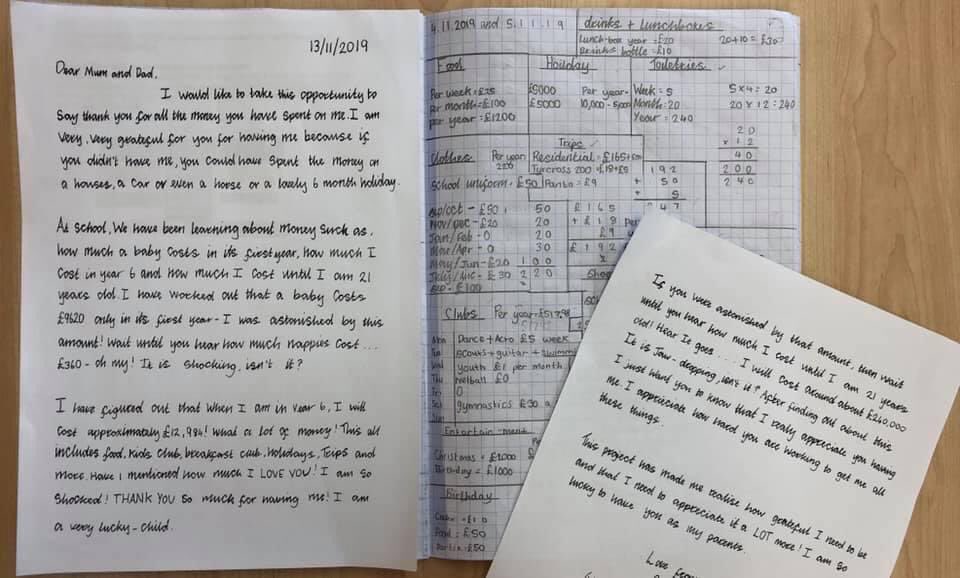 13/11/2019
Dear Mum and Dad,
I would like to take this opportunity to
say thank you for all the money you have spent on me. I am
very, very grateful for you for having me because if
you didn't have me, you could have spent the money on
a houses, a car or even a horse or a lovely 6 month holiday.
At school, We have been learning about money such as,
how much a baby costs in its first year, how much I
cost in year 6 and how much I cost until I am 21
years old. I have worked out that a baby costs
£9620 only in its first year - I was astonished by this
amount! Wait until you hear how much nappies cost...
£360 - oh my! It is shocking, isn't it?
I have figured out that when I am in year 6, I will
cost approximately £12,984! What a lot of money! This all
includes food, Kids club, breakfast club, Holidays, Trips and
more. Have I mentioned how much I LOVE YOU! I am so
shocked! THANK YOU so much for having me! I am
a very lucky-child.
4.11.2019 and 5.11.19
drinks + Lunchboxes
Lunch-box year = £20
Drinks bottle = £10
20+10 = £30
Food
Per week = £25
Per month = £100
per year = £1200
Holiday
£5000
£5000
Per year -
10,000 - 5000
Toiletries
Week = 5
Month: 20
Year = 240
5x4 = 20
20 x 12 = 240
20
x 12
40
200
240
Clothes
Per year
220
school uniform = £50
sep/oct - £50
Nov/Dec - £20
Jan/Feb - 0
Mar/Apr - 0
May/Jun - £20
50
20
20
30
100
220
Trips
Residential = £165
Panto = £9
£165
+ £18
£9
£192
192
+ 50
+ 5
247
Clubs
Per year = £517.98
Dance + Acro £5 week
scouts + guitar + swimm
youth £1 per month
netball £0
0
gymnastics £30 a
Entertain-ment
Christmas = £2000
Birthday = £1000
Birthday
Cake = £10
Food = £50
£50
If you were astonished by that amount, then wait
until you hear how much I cost until I am 21 years
old! Hear It goes.... I will cost around about £240,000
It is Jaw-dropping, isn't it? After finding out about this
I just want you to know that I really appreciate you having
me. I appreciate how hard you are working to get me all
these things.
This project has made me realise how grateful I need to be
and that I need to appreciate it a LOT more! I am so
lucky to have you as my parents.
Love